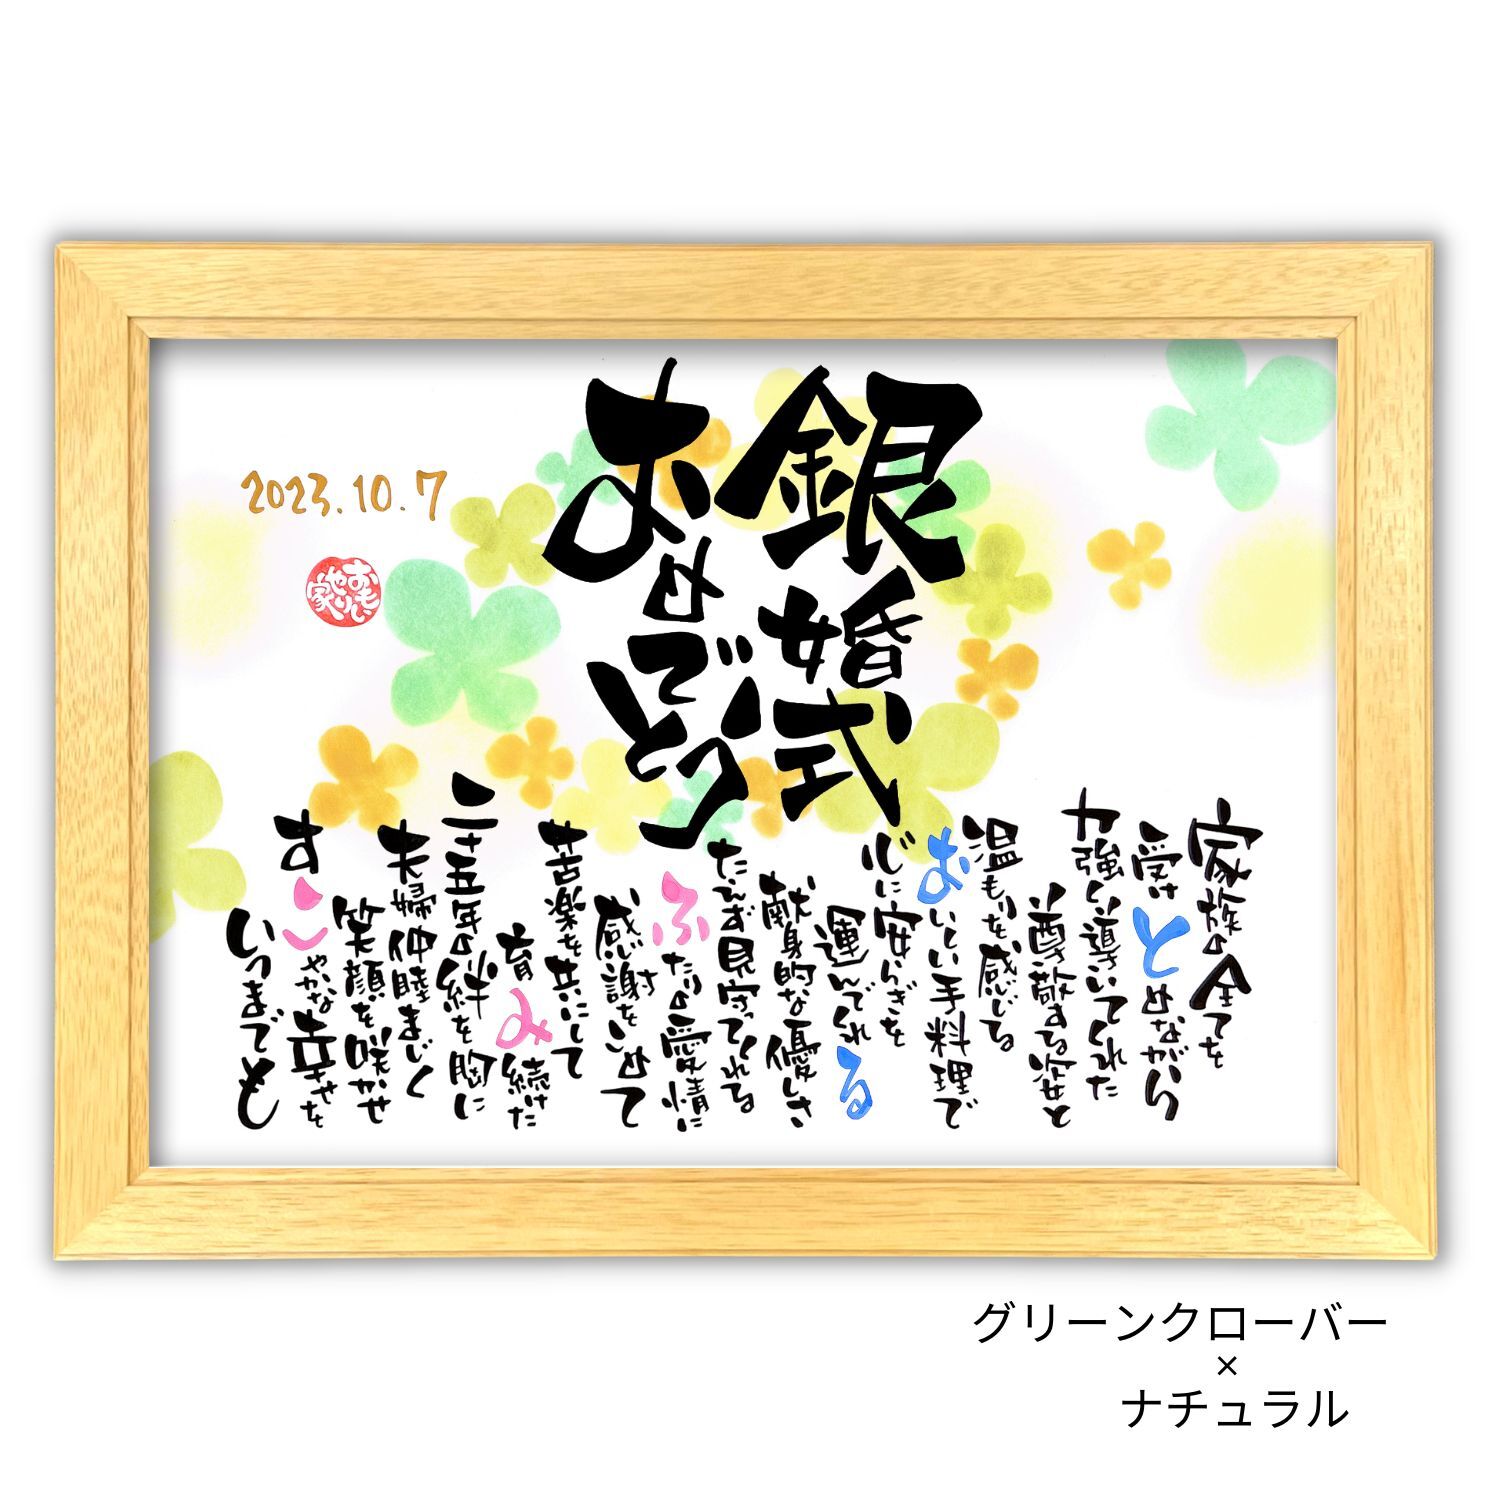 銀婚式
おめでとう
2023.10.7
おもい
やり
家
家族の全てを
受けとめながら
力強く導いてくれた
尊敬する姿と
温もりを感じる
おいしい手料理で
心に安らぎを
運んでくれる
献身的な優しさ
たえず見守ってくれてる
ふたりの愛情に
感謝をこめて
苦楽を共にして
育み続けた
二十五年の絆を胸に
夫婦仲睦まじく
笑顔を咲かせ
すこやかな幸せを
いつまでも
グリーンクローバー
×
ナチュラル